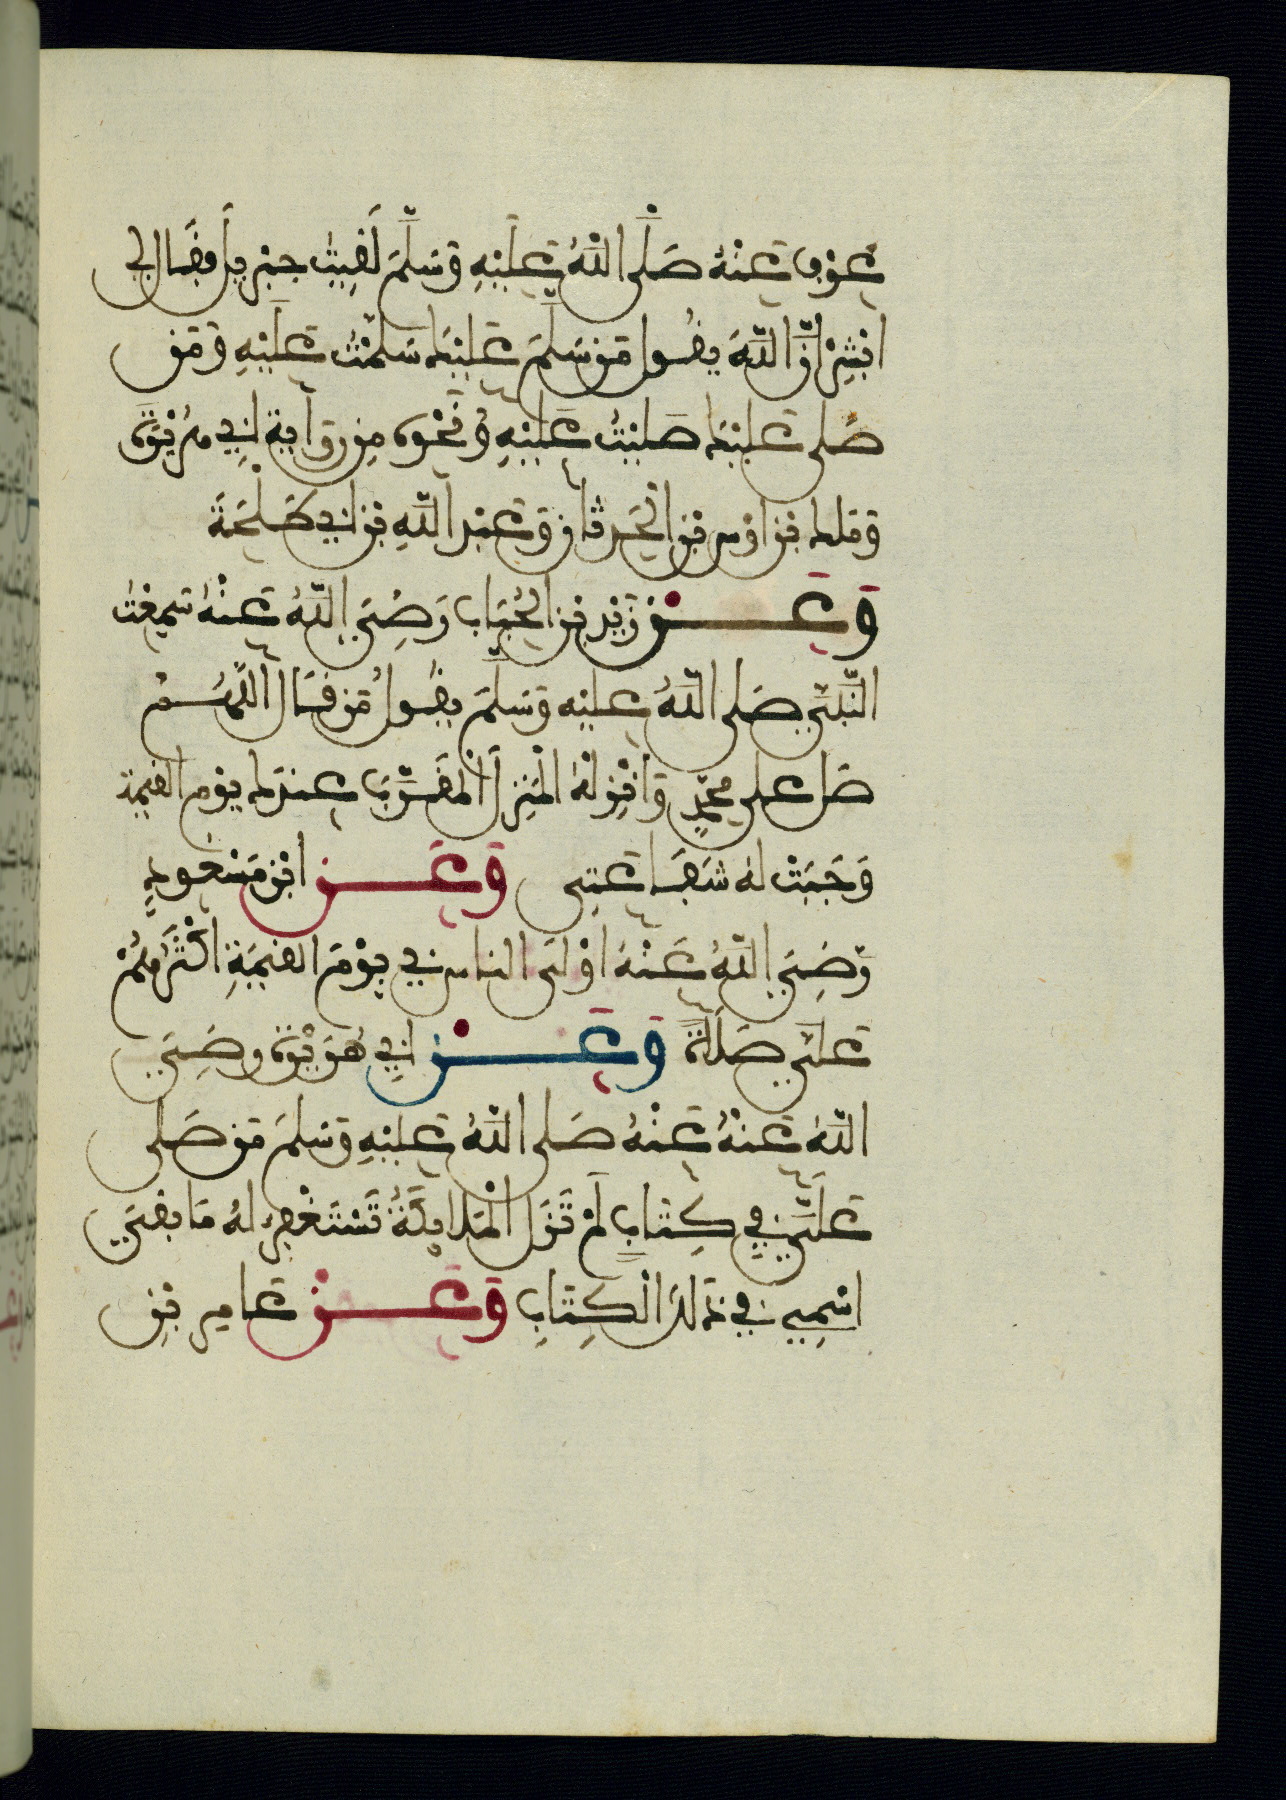 عَوْبٍ عَنْهُ صَلَّى اللَّهُ عَلَيْهِ وَسَلَّمَ لَقِيتُ جِبْرِيلَ فَقَال لي
ابْشِرْ انَّ اللَّهَ يقُول مَن سَلَّمَ عَلَيْكَ سَلَّمْتُ عَلَيْهِ وَمَن
صَلى عَلَيْكَ صَلَيْتُ عَلَيْهِ وَنَحْوه مِن رِوَايةِ ابِي هُرَيْرَة
وَمَلك بْن اوْس بْنِ الْحَدثان وَعَبْد اللَّهِ بْن ابي طَلْحَةَ
وَعَــــنْ زَيْد بْن الْحُبَاب رَضِيَ اللَّهُ عَنْهُ سَمِعْتُ
النَّبِيَّ صَلى اللَّهُ عَلَيْه وَسَلَّمَ يقُول مَن قَال اللَّهُــمَّ
صَل عَلى مُحَمَّدٍ وَأَنْزِلْهُ الْمَنْزِلَ الْمُقَرَّبَ عِندَك يوْم القِيمَة
وَجَبَتْ لهُ شَفَاعَتِي وَعَــــن ابْنِ مَسْعُودٍ
رَضِيَ اللَّهُ عَنْهُ اوْلَى الناس بي يوْمَ القِيمَةِ اكْثَرُهُمْ
عَلَيَّ صَلَاةً وَعَــــنْ ابِي هُرَيْرَة رَضِيَ
اللَّهُ عَنْهُ عَنْهُ صَلى اللَّهُ عَلَيْهِ وَسَلمَ مَن صَلى
عَلَيَّ فِي كِتَابٍ لَمْ تَزَلِ الْمَلَائِكَةُ تَسْتَغْفِرُ لهُ مَا بقيَ
اسْمِي في ذَلِكَ الْكِتَابِ وَعَــــنْ عَامِرِ بْنِ